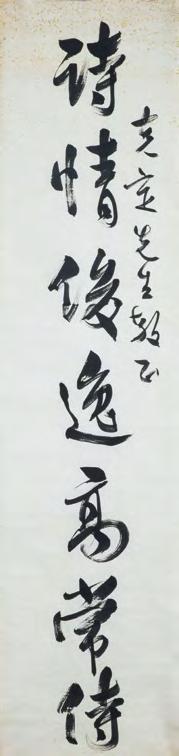 克定先生教正
詩情俊逸高常侍